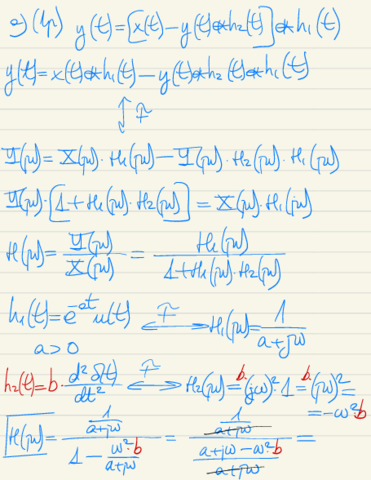 э) (1p) y(t)=[x(t)-y(t)*h₂(t)]*h₁(t)
y(t)=x(t)*h₁(t)-y(t)*h₂(t)*h₁(t)
↕ F
Y(jω)=X(jω)·H₁(jω)-Y(jω)·H₂(jω)·H₁(jω)
Y(jω)·[1+H₁(jω)·H₂(jω)]=X(jω)·H₁(jω)
H(jω)=Y(jω)/X(jω)=H₁(jω)/(1+H₁(jω)·H₂(jω))
h₁(t)=e^(-at)u(t) ⟷F H₁(jω)=1/(a+jω)
a>0
h₂(t)=b·d²δ(t)/dt² ⟷F H₂(jω)=b·(jω)²·1=b·(jω)²=
=-ω²b
H(jω)=(1/(a+jω))/(1-ω²·b/(a+jω))=(1/(a+jω))/((a+jω-ω²·b)/(a+jω))=